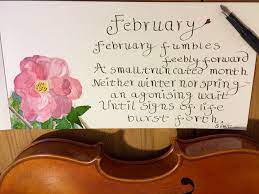 February
February fumbles
feebly forward
A small truncated month
Neither winter nor spring
an agonising wait
Until signs of life
burst forth.